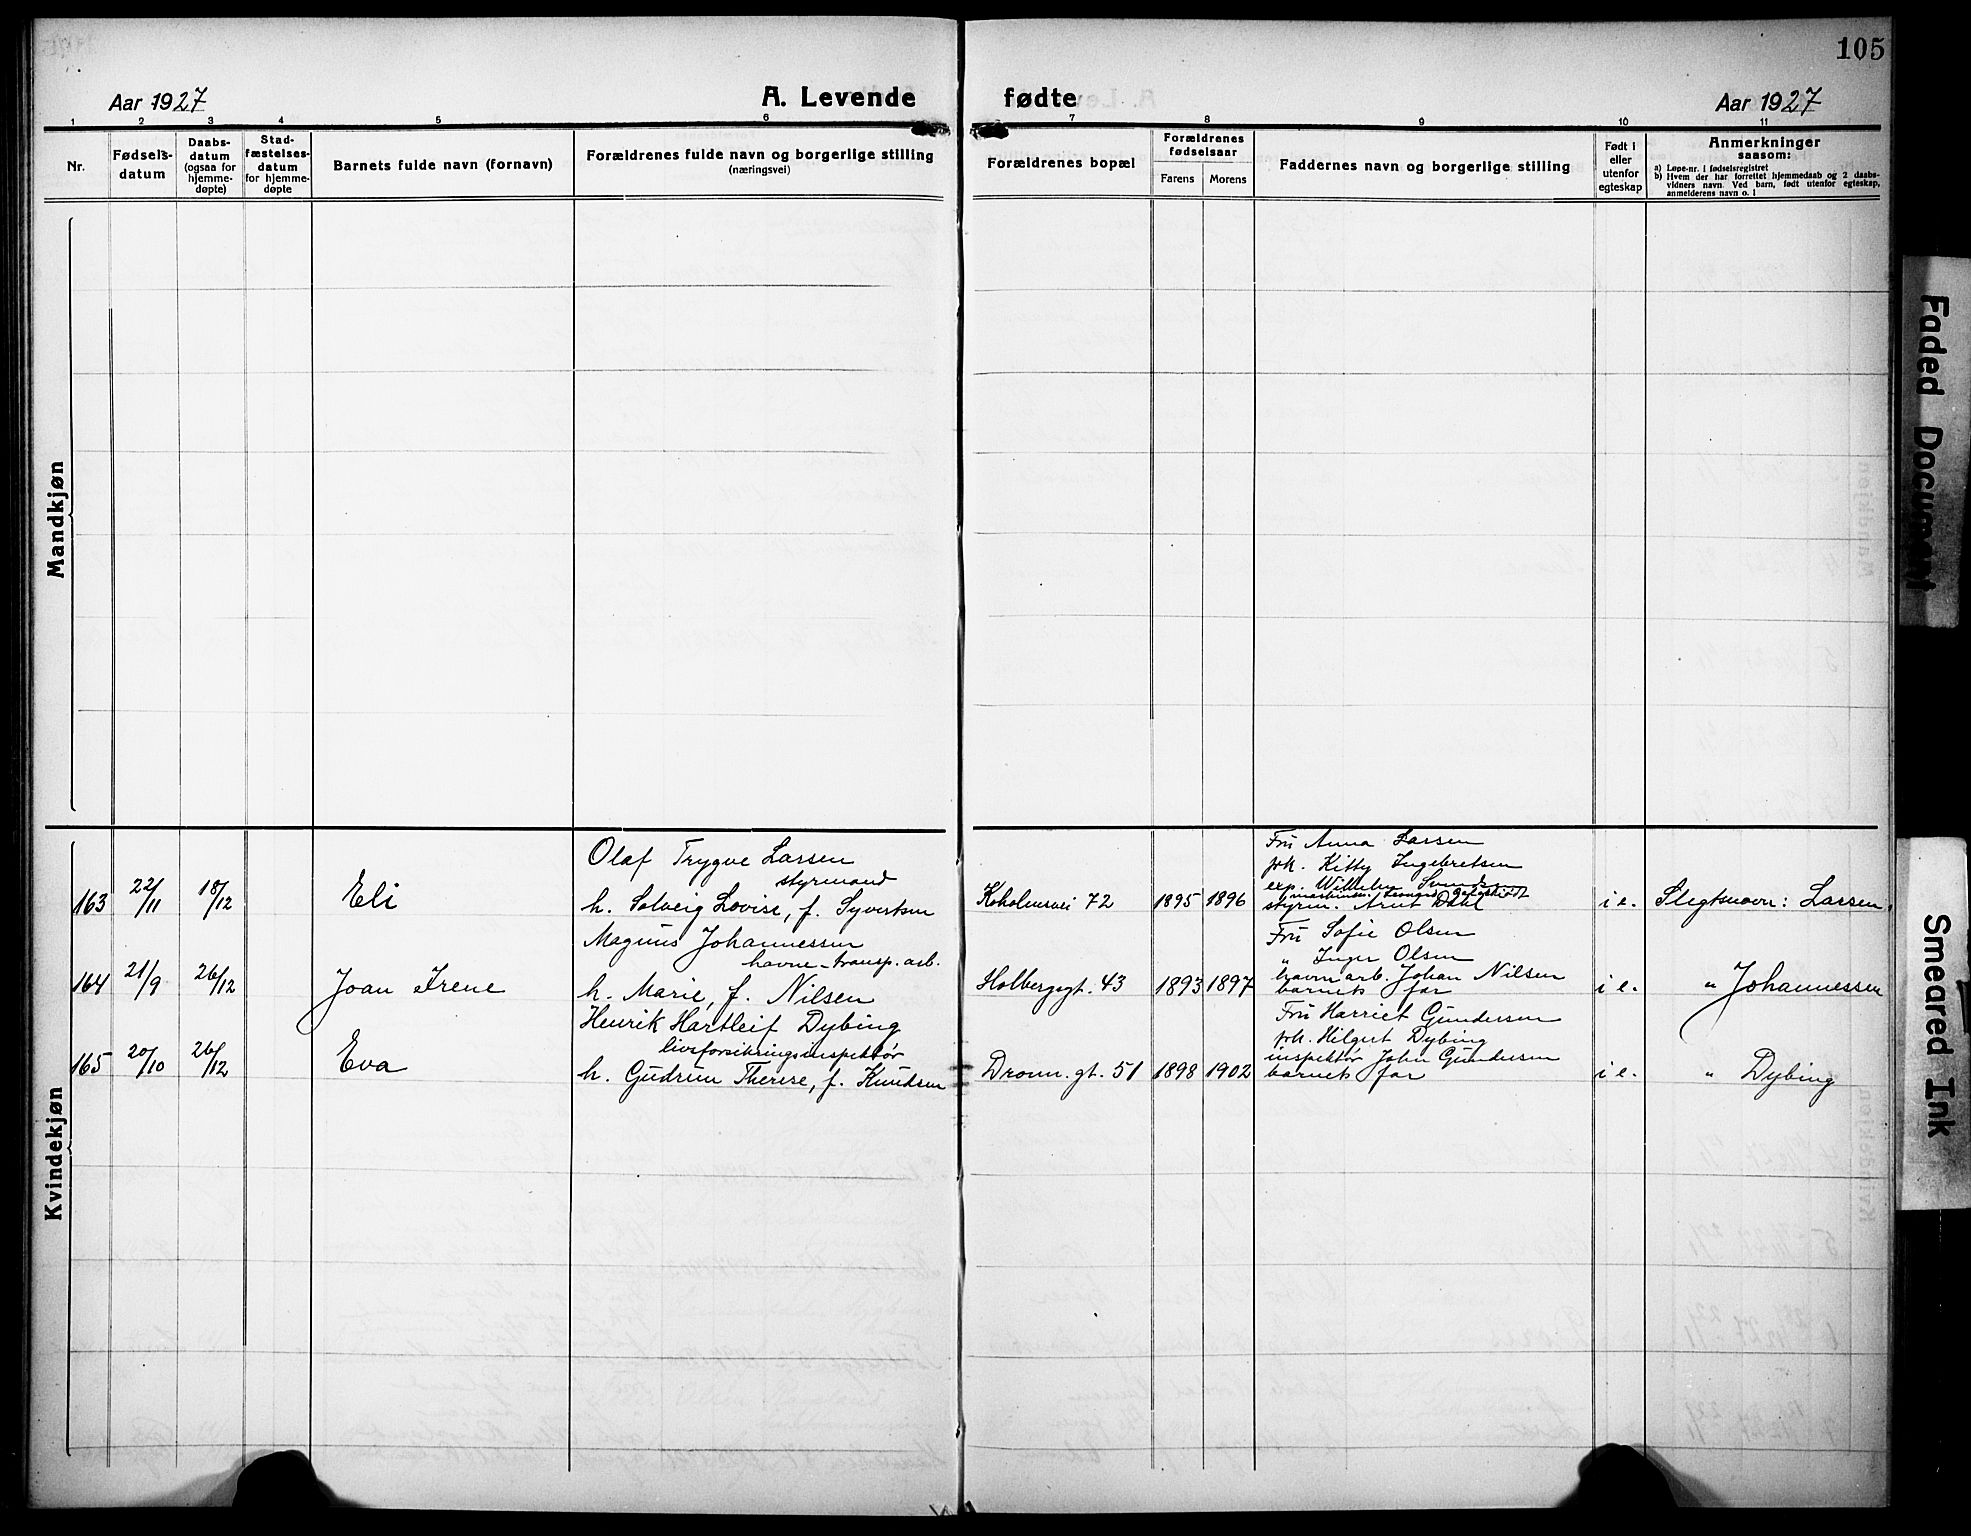 105
Aar 1927
A. Levende
fødte
Aar 1927
1 2 3 4 5 6 7 8 9 10 11
Nr.
Fødsels-
datum
Daabs-
datum
(ogsaa for
hjemme-
døpte)
Stad-
fæstelses-
datum
for hjemme-
døpte
Barnets fulde navn (fornavn)
Forældrenes fulde navn og borgerlige stilling
(næringsvei)
Forældrenes bopæl
Forældrenes
fødselsaar
Farens Morens
Faddernes navn og borgerlige stilling
Født i
eller
utenfor
egteskap
Anmerkninger
saasom:
a) Løpe-nr. i fødselsregistret
b) Hvem der har forrettet hjemmedaab og 2 daabs-
vidners navn. Ved barn, født utenfor egteskap,
anmelderens navn o. l
Mandkjøn
Kvindekjøn
163 22/11 18/12 Eli
Olaf Trygve Larsen
styrmand
h. Solveig Lovise, f. Syvertsen
Kokolensvei 72 1895 1896
Fru Anna Larsen
frk. Kitty Ingebretsen
exp. Wilhelm Svends
maskinist
styrm. Arnt Dahl
i e. Slegtsnavn: Larsen
164 21/9 26/12 Joan Irene
Magnus Johannessen
havne-transp. arb.
h. Marie, f. Nilsen
Holbergsgt. 43 1893 1897
Fru Sofie Olsen
" Inger Olsen
havnearb. Johan Nilsen
barnets far
i e. " Johannessen
165 20/10 26/12 Eva
Henrik Hartleif Dybing
livsforsikringsinspektør
h. Gudrun Therese, f. Knudsen
Dronn. gt. 51 1898 1902
Fru Harriet Gundersen
frk. Hilgert Dybing
inspektør John Gundersen
barnets far
i e. " Dybing
Faded Document
Smeared Ink